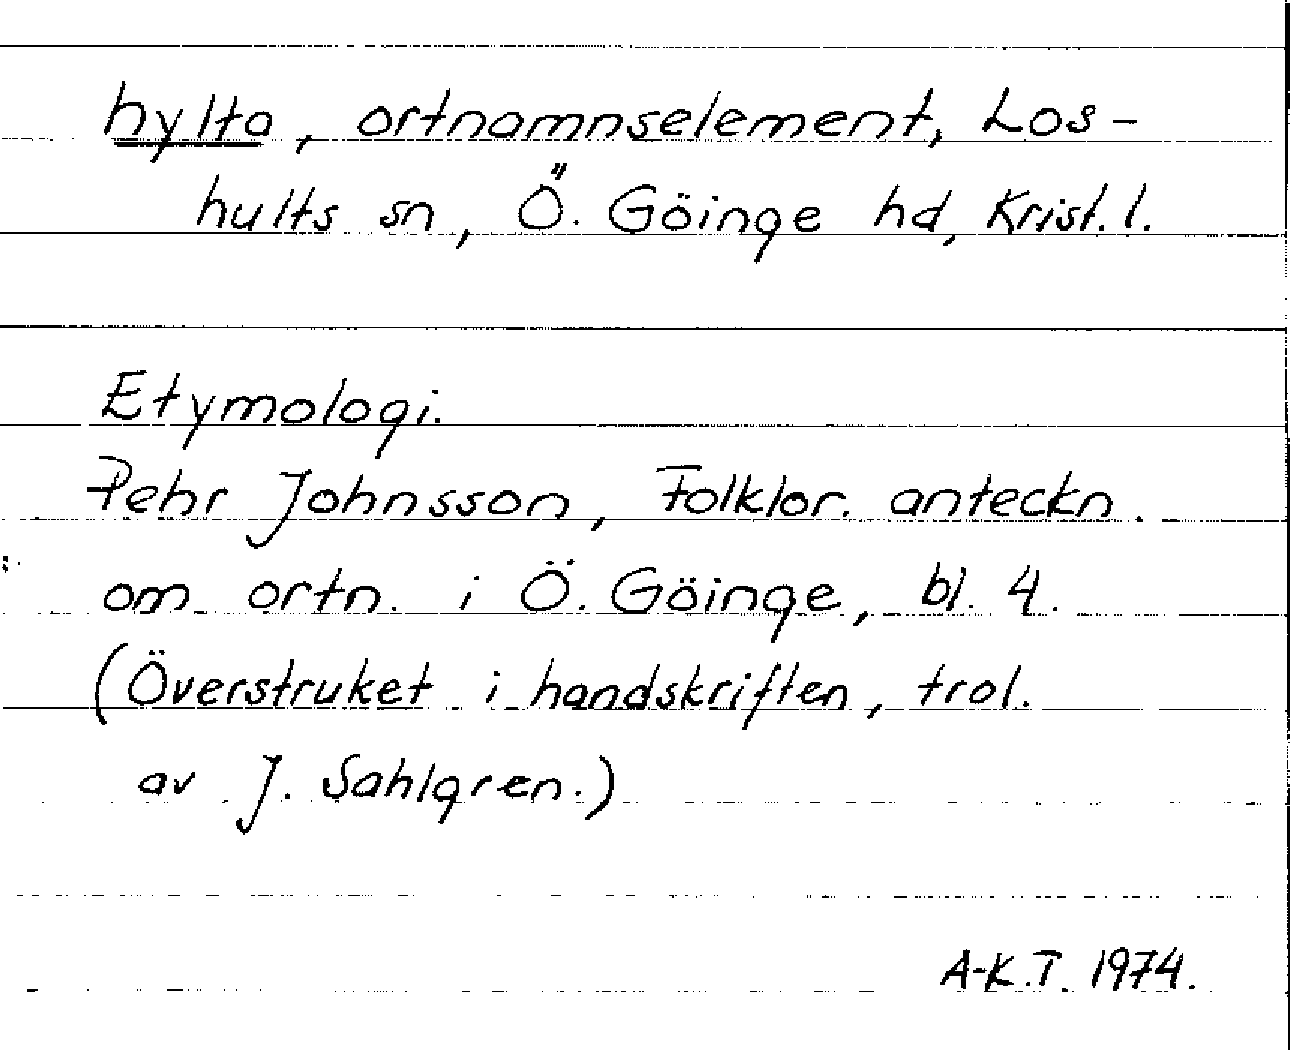 hylta, ortnamnselement, Los-
hults sn, Ö. Göinge hd, Krist. l.
Etymologi.
Pehr Johnsson, Folklor. anteckn.
om ortn. i Ö. Göinge, bl. 4.
(Överstruket i handskriften, trol.
av J. Sahlgren.)
A-K.T. 1974.